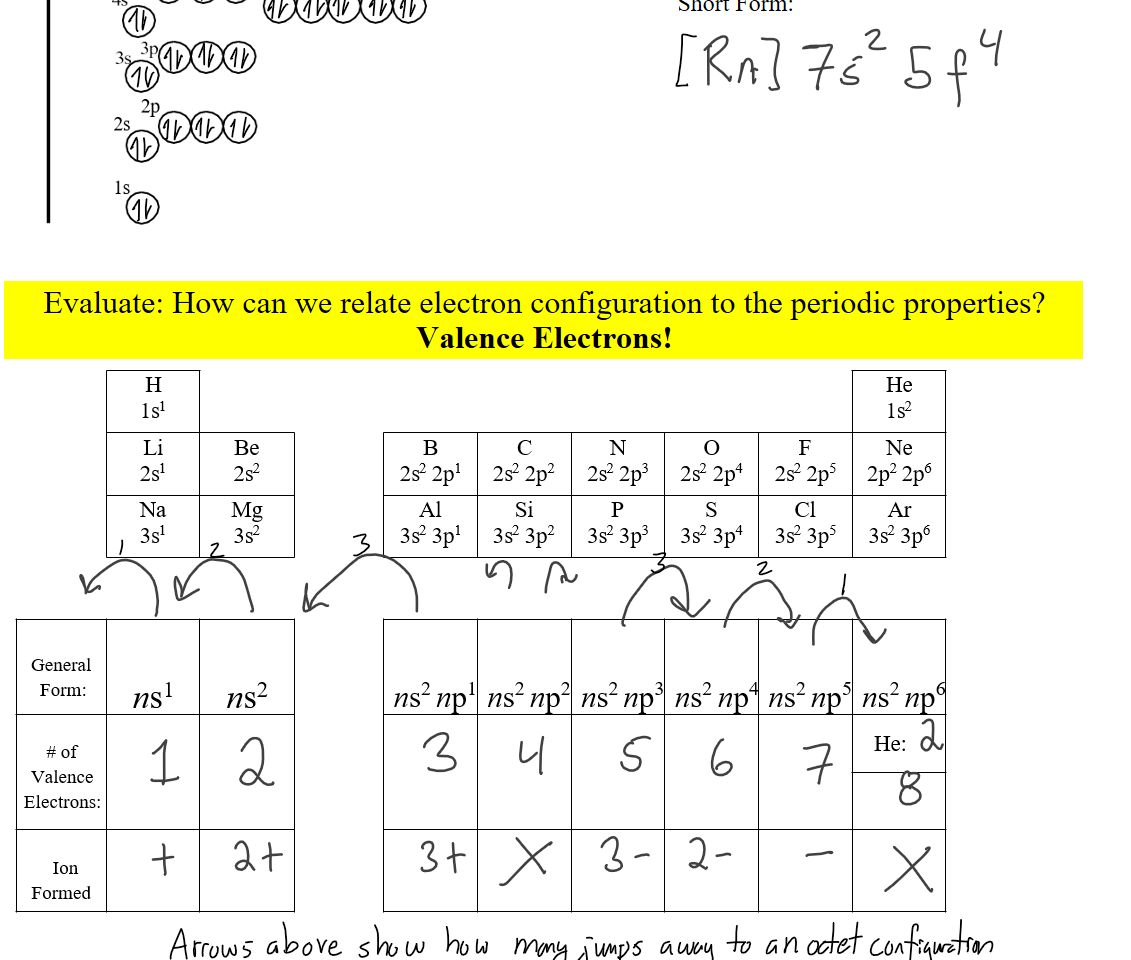 4s
Short Form:
3s 3p
[Rn] 7s² 5f⁴
2p
2s
1s
Evaluate: How can we relate electron configuration to the periodic properties?
Valence Electrons!
H He
1s¹ 1s²
Li Be B C N O F Ne
2s¹ 2s² 2s² 2p¹ 2s² 2p² 2s² 2p³ 2s² 2p⁴ 2s² 2p⁵ 2p² 2p⁶
Na Mg Al Si P S Cl Ar
3s¹ 3s² 3s² 3p¹ 3s² 3p² 3s² 3p³ 3s² 3p⁴ 3s² 3p⁵ 3s² 3p⁶
1 2 3 3 2 1
General
Form: ns¹ ns² ns² np¹ ns² np² ns² np³ ns² np⁴ ns² np⁵ ns² np⁶
# of
Valence
Electrons: 1 2 3 4 5 6 7 He: 2
8
Ion
Formed + 2+ 3+ X 3- 2- - X
Arrows above show how many jumps away to an octet configuration